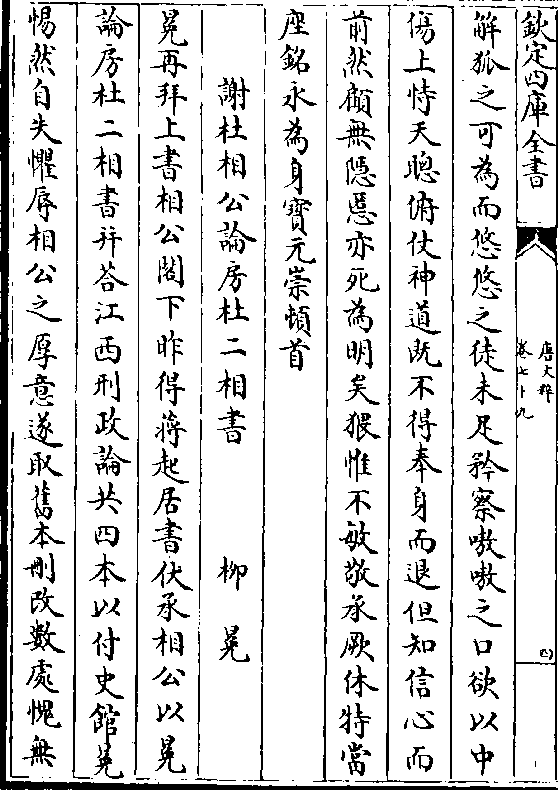 欽定四庫全書
唐文粹
卷七十九
四
解狐之可為而悠悠之徒未足矜察嗷嗷之口欲以中
傷上恃天聰俯仗神道既不得奉身而退但知信心而
前然顧無隱慝亦死為明矣猥惟不敏敬承厥休特當
座銘永為身寶元崇頓首
謝杜相公論房杜二相書
柳冕
冕再拜上書相公閤下昨得蔣起居書伏承相公以冕
論房杜二相書并荅江西刑政論共四本以付史館冕
惕然自失懼辱相公之厚意遂取舊本刪改數處愧無